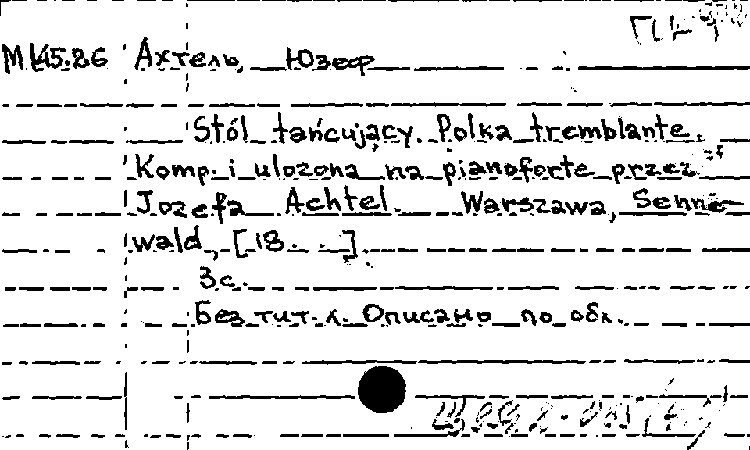 М 45.86 Ахтель, Юзеф
Stól tańcujący. Polka tremblante.
Komp. i ulozona na pianoforte przez
Jozefa Achtel. Warszawa, Senne-
wald, [18. . .].
3 с.
Без тит. л. Описано по обл.